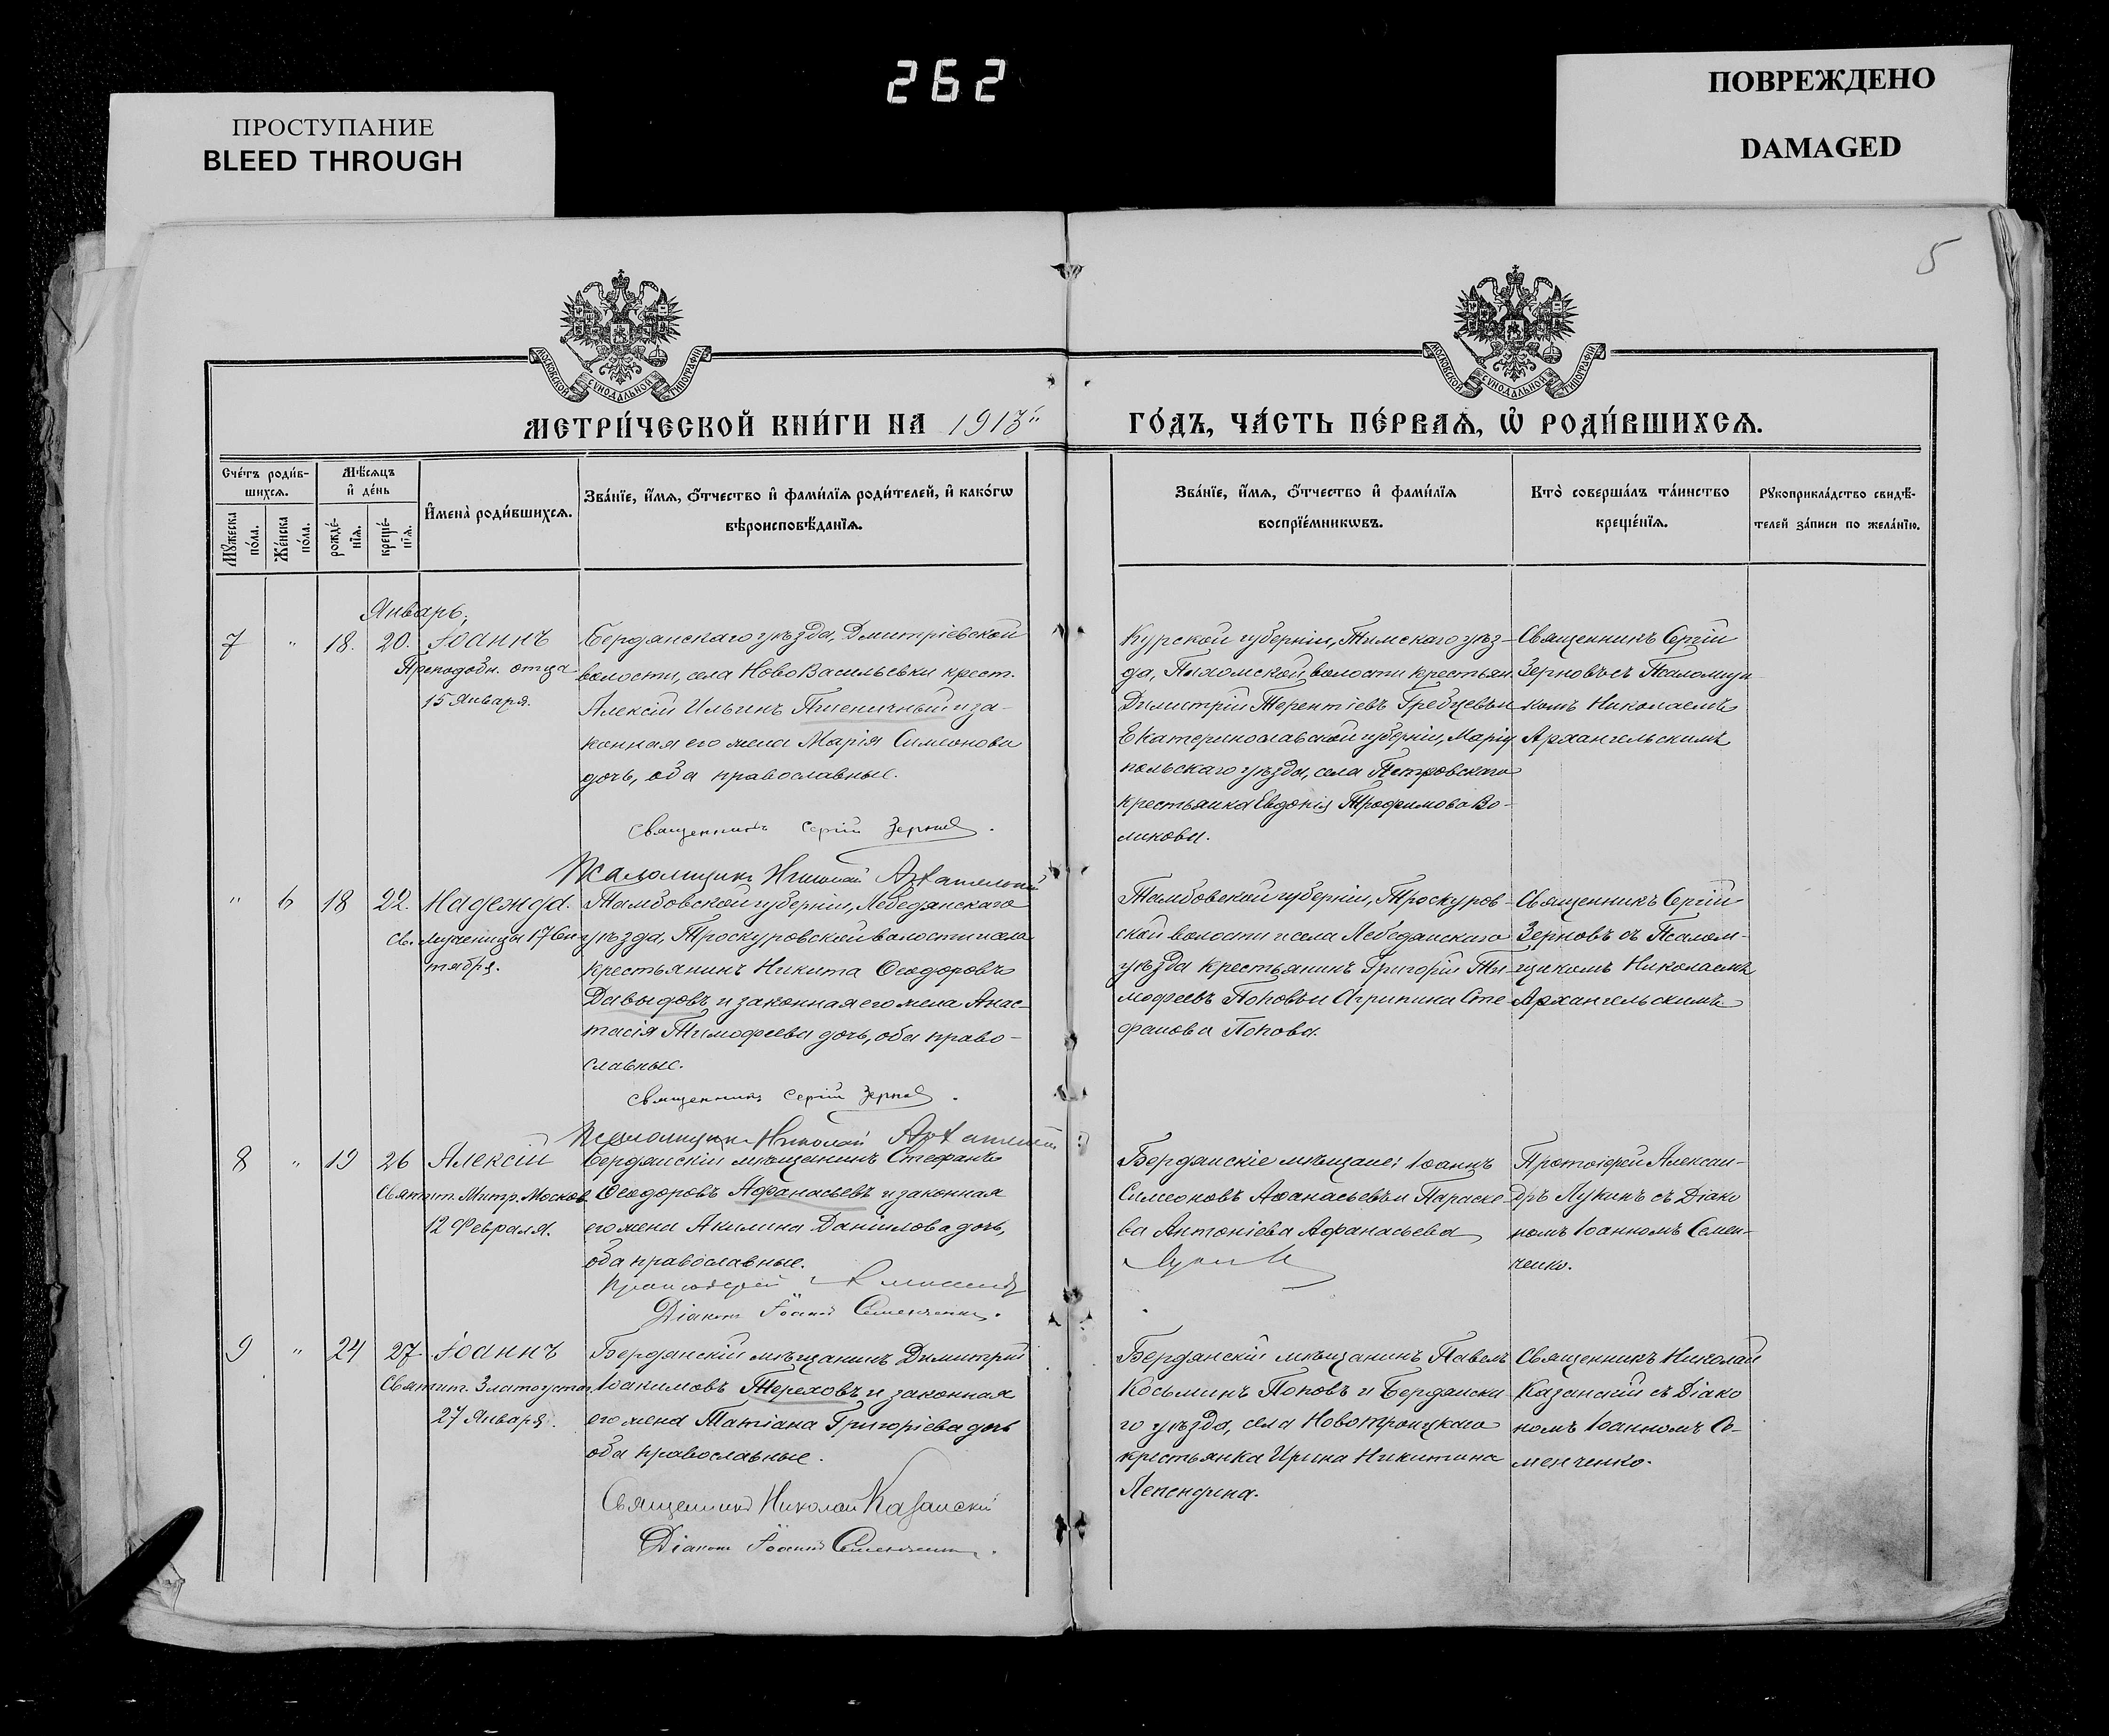 262
ПРОСТУПАНИЕ
BLEED THROUGH
ПОВРЕЖДЕНО
DAMAGED
5
МОСКОВСКОЙ СѴНОДАЛЬНОЙ ТИПОГРАФІИ
МОСКОВСКОЙ СѴНОДАЛЬНОЙ ТИПОГРАФІИ
МЕТРИ́ЧЕСКОЙ КНИ́ГИ НА 1913
ГО́ДЪ, ЧА́СТЬ ПЕ́РВАѦ, Ѡ҆ РОДИ́ВШИХСѦ.
Сче́тъ роди́в-
шихсѧ.
Мꙋ́жеска по́ла.
Же́нска по́ла.
Мѣ́сѧцъ
и҆ де́нь
рожде́-
нїѧ.
креще́-
нїѧ.
И҆мена̀ роди́вшихсѧ.
Зва́нїе, и҆́мѧ, ѻ҆́тчество и҆ фами́лїѧ роди́телей, и҆ како́гѡ
вѣроисповѣ́данїѧ.
Зва́нїе, и҆́мѧ, ѻ҆́тчество и҆ фами́лїѧ
воспрїе́мникѡвъ.
Кто̀ соверша́лъ та́инство
креще́нїѧ.
Рꙋкоприкла́дство свидѣ́-
телей за́писи по жела́нїю.
Январь,
7 " 18. 20. Іоаннъ
Преподобн. отца
15 Января.
Бердянскаго уѣзда, Дмитріевской
волости, села НовоВасильевки крест.
Алексій Ильинъ Пшеничный и за-
конная его жена Марія Симеонова
дочь, оба православные.
Священникъ Сергій Зерновъ.
Псаломщикъ Николай Архангельскій
Курской губерніи, Тимскаго уѣз-
да, волости крестьян.
Димитрій Терентіевъ Гребцевъ и
Екатеринославской губерніи, Маріу
польскаго уѣзда, села Петровскаго
крестьянка Евдокія Трофимова Во-
ликова.
Священникъ Сергій
Зерновъ съ Псаломщи
комъ Николаемъ
Архангельскимъ
" 6 18 22. Надежда.
Св. Мученицы 17 Сен
тября.
Тамбовской губерніи, Лебедянскаго
уѣзда, Троскуровской волости и села
крестьянинъ Никита Ѳеодоровъ
Давыдовъ и законная его жена Анас-
тасія Тимофеева дочь, оба право-
славные.
Священникъ Сергій Зерновъ.
Псаломщикъ Николай Архангельскій
Тамбовской губерніи, Троскуров-
ской волости и села Лебедянскаго
уѣзда крестьянинъ Григорій Ти-
мофеевъ Поповъ и Агрипина Сте
фанова Попова.
Священникъ Сергій
Зерновъ съ Псалом-
щикомъ Николаемъ
Архангельскимъ
8 " 19 26 Алексій
Святит. Митр. Москов.
12 Февраля.
Бердянскій мѣщанинъ Стефанъ
Ѳеодоровъ Афанасьевъ и законная
его жена Акилина Даніилова дочь,
оба православные.
Протоіерей
Діаконъ Іоаннъ Семенченко.
Бердянскіе мѣщане: Іоаннъ
Симеоновъ Афанасьевъ и Параске
ва Антоніева Афанасьева
Протоіерей Алексан-
дръ Лукинъ съ Діако
номъ Іоанномъ Семен-
ченко.
9 " 24 27 Іоаннъ
Святит. Златоустаго
27 Января.
Бердянскій мѣщанинъ Димитрій
Іоакимовъ Тереховъ и законная
его жена Татіана Григоріева дочь
оба православные.
Священникъ Николай Казанскій
Діаконъ Іоаннъ Семенченко.
Бердянскій мѣщанинъ Павелъ
Косьминъ Поповъ и Бердянска-
го уѣзда, села Новотроицкаго
крестьянка Ирина Никитина
Лепендина.
Священникъ Николай
Казанскій съ Діако
номъ Іоанномъ Се-
менченко.